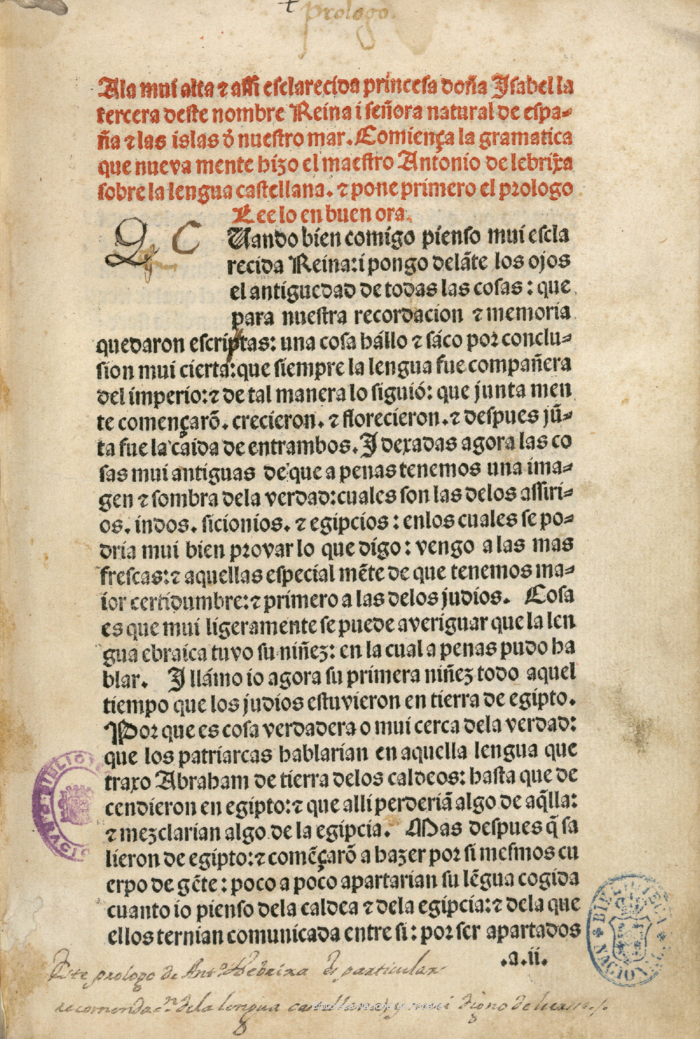 prologo.
Ala mui alta ⁊ assi esclarecida princesa doña Isabel la
tercera deste nombre Reina i señora natural de espa-
ña ⁊ las islas ď nuestro mar. Comiença la gramatica
que nueva mente hizo el maestro Antonio de lebrixa
sobre la lengua castellana. ⁊ pone primero el prologo
Lee lo en buen ora.
Q C Uando bien comigo pienso mui escla
recida Reina: i pongo delãte los ojos
el antiguedad de todas las cosas: que
para nuestra recordacion ⁊ memoria
quedaron escriptas: una cosa hállo ⁊ sáco por conclu-
sion mui cierta: que siempre la lengua fue compañera
del imperio: ⁊ de tal manera lo siguió: que junta men
te començarõ. crecieron. ⁊ florecieron. ⁊ despues jũ-
ta fue la caida de entrambos. I dexadas agora las co
sas mui antiguas de que a penas tenemos una ima-
gen ⁊ sombra dela verdad: cuales son las delos assiri-
os. indos. sicionios. ⁊ egipcios: enlos cuales se po-
dria mui bien provar lo que digo: vengo a las mas
frescas: ⁊ aquellas especial mẽte de que tenemos ma-
ior certidumbre: ⁊ primero a las delos judios. Cosa
es que mui ligeramente se puede averiguar que la len
gua ebraica tuvo su niñez: en la cual a penas pudo ha
blar. I llámo io agora su primera niñez todo aquel
tiempo que los judios estuvieron en tierra de egipto.
Por que es cosa verdadera o mui cerca dela verdad:
que los patriarcas hablarian en aquella lengua que
traxo Abraham de tierra delos caldeos: hasta que de
cendieron en egipto: ⁊ que alli perderiã algo de aq̃lla:
⁊ mezclarian algo de la egipcia. Mas despues q̃ sa
lieron de egipto: ⁊ comẽçarõ a hazer por si mesmos cu
erpo de gẽte: poco a poco apartarian su lẽgua cogida
cuanto io pienso dela caldea ⁊ dela egipcia: ⁊ dela que
ellos ternian comunicada entre si: por ser apartados
.a.ii.
Este prologo de Antº. Nebrixa es particular
recomendaⁿ. dela lengua castellana, y mui digno de
BIBLIOTECA
BIBLIOTECA NACIONAL